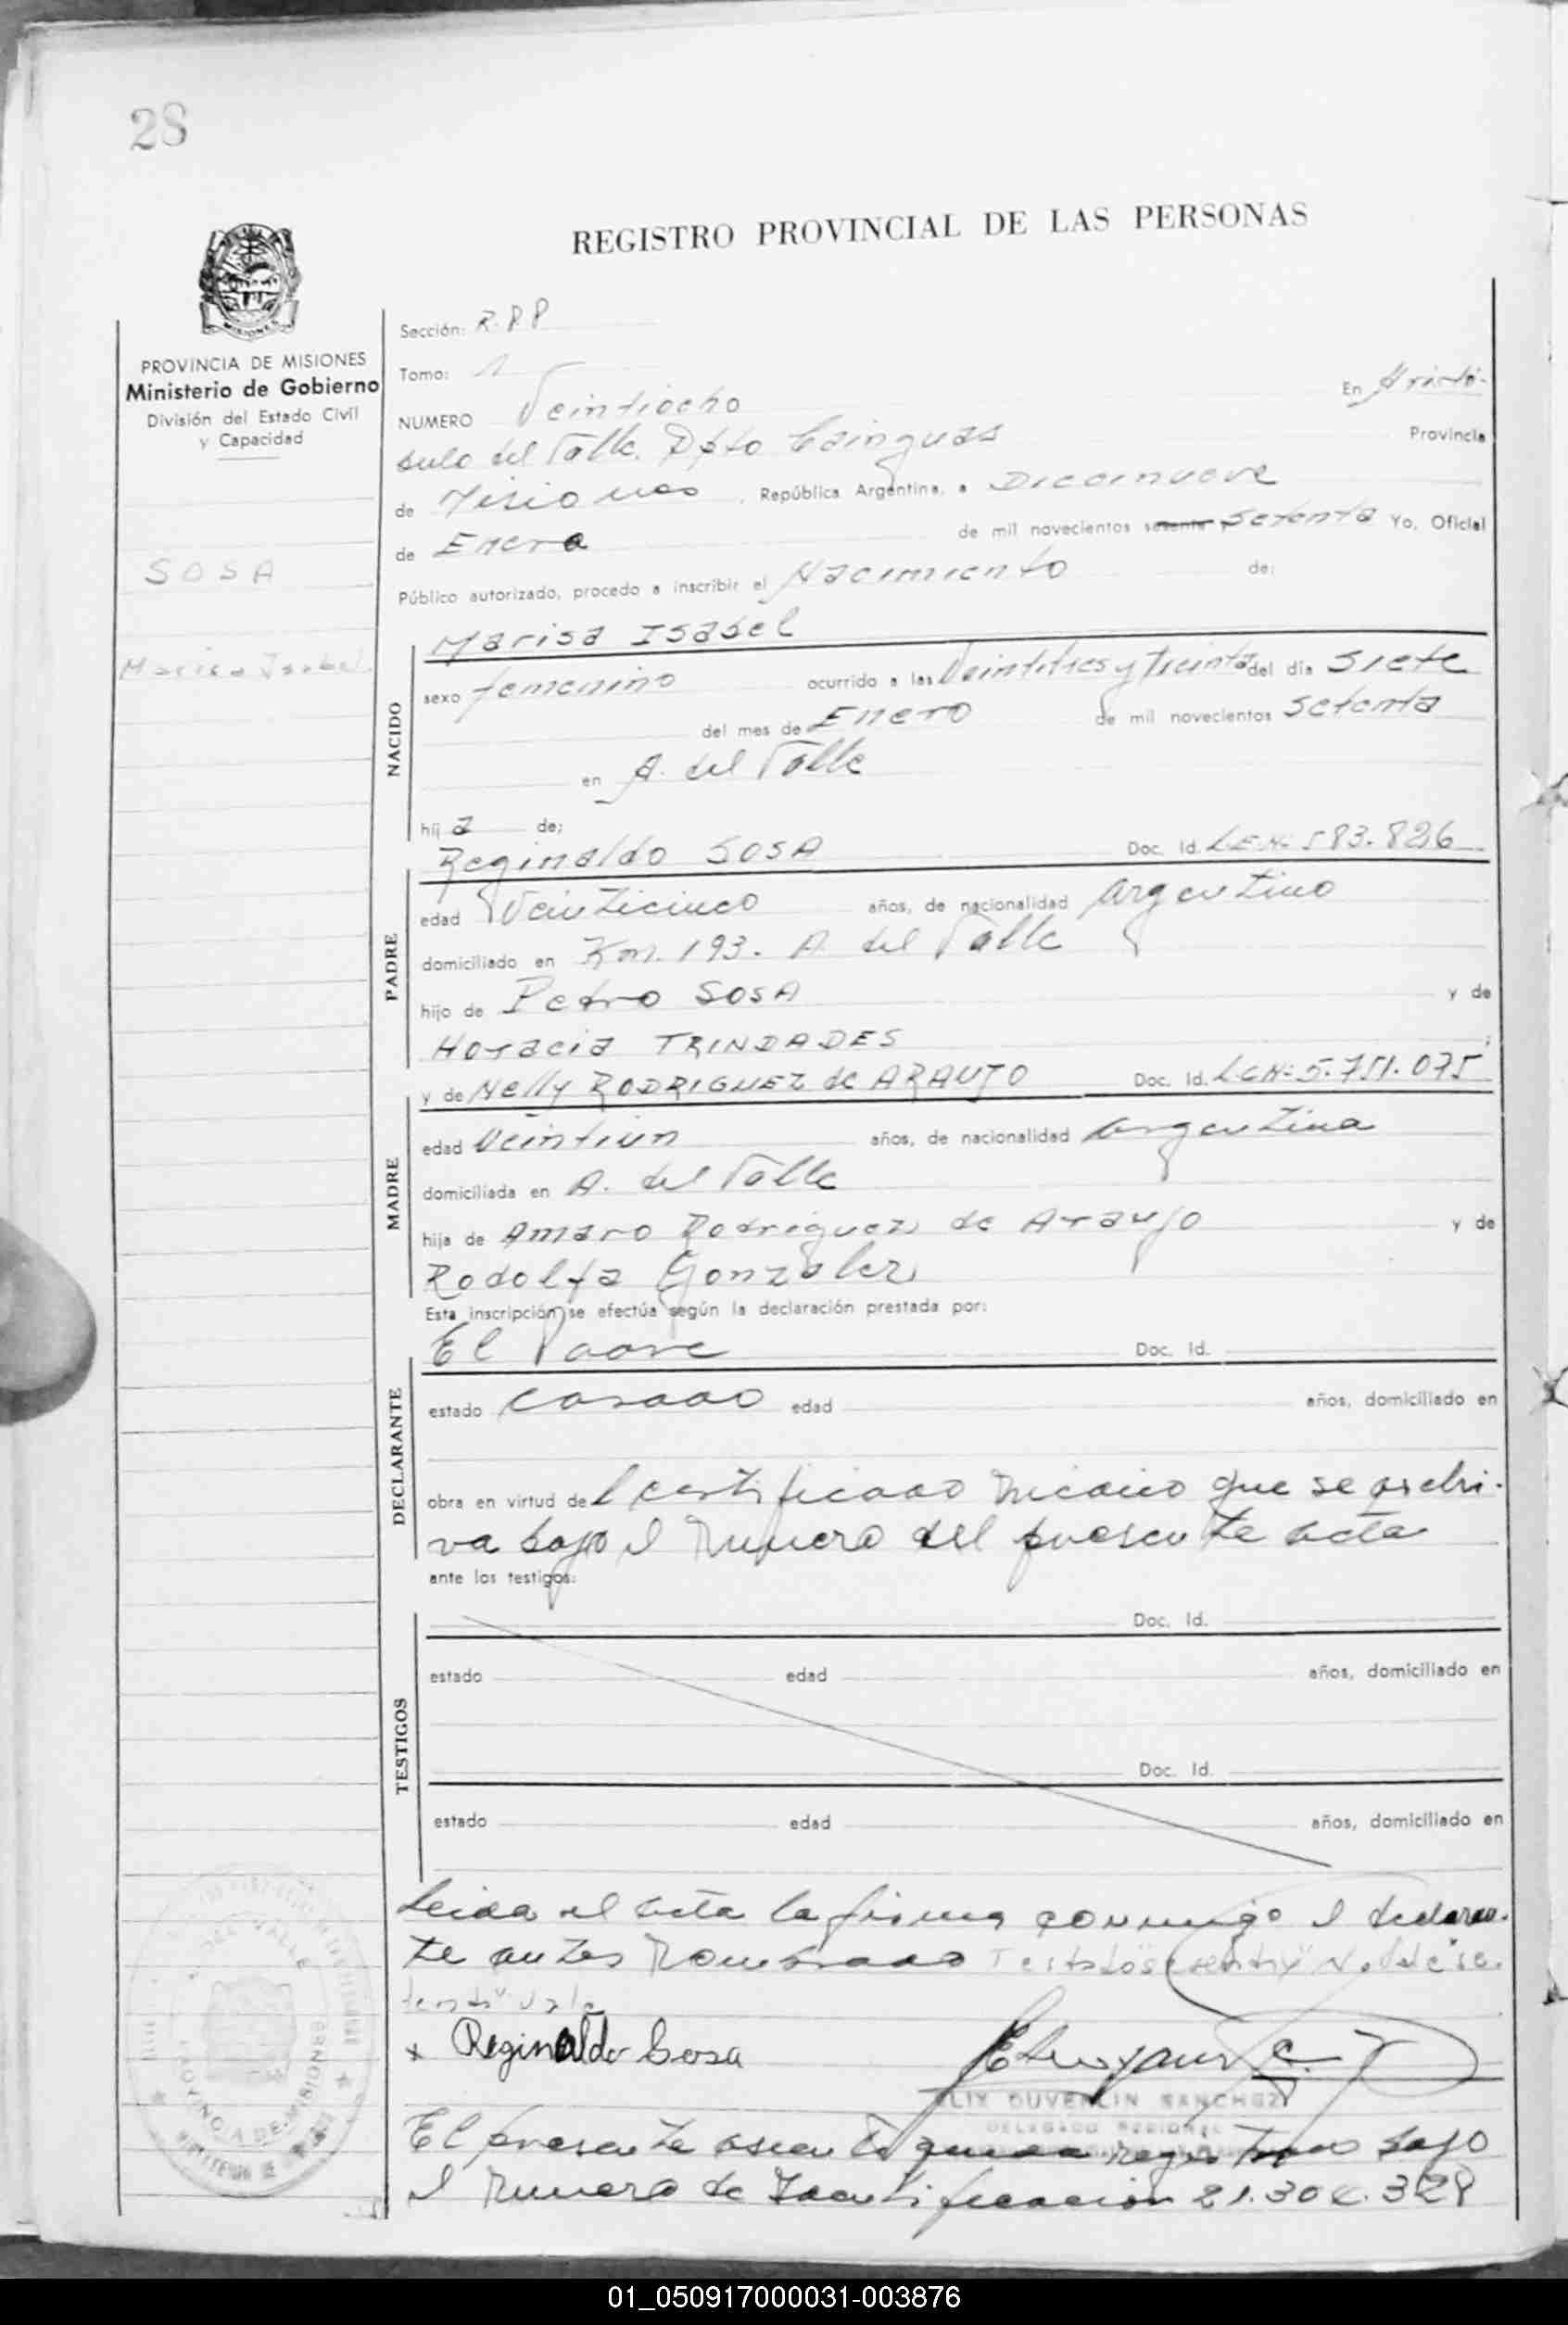 28
REGISTRO PROVINCIAL DE LAS PERSONAS
MISIONES
PROVINCIA DE MISIONES
Ministerio de Gobierno
División del Estado Civil
y Capacidad
SOSA
Marisa Isabel
Sección: R.P.P
Tomo: 1
NUMERO Veintiocho En Aristó-
bulo del Valle. Dpto Cainguas Provincia
de Misiones, República Argentina, a Diecinueve
de Enero de mil novecientos sesenta y setenta Yo, Oficial
Público autorizado, procedo a inscribir el Nacimiento de:
Marisa Isabel
NACIDO
sexo femenino ocurrido a las Veintitres y treinta del día Siete
del mes de Enero de mil novecientos setenta
en A. del Valle
hija de:
Reginaldo SOSA Doc. Id. 583.826
PADRE
edad Veinticinco años, de nacionalidad argentino
domiciliado en Km. 193. A. del Valle
hijo de Pedro SOSA y de
Horacia TRINDADES;
y de Nelly RODRIGUEZ de ARAUJO Doc. Id. 5.751.075
MADRE
edad Veintiun años, de nacionalidad argentina
domiciliada en A. del Valle
hija de Amaro Rodriguez de Araujo y de
Rodolfa Gonzalez
Esta inscripción se efectúa según la declaración prestada por:
El Padre Doc. Id.
DECLARANTE
estado casado edad años, domiciliado en
obra en virtud del certificado médico que se archi-
va bajo el numero del presente acta
ante los testigos:
Doc. Id.
TESTIGOS
estado edad años, domiciliado en
Doc. Id.
estado edad años, domiciliado en
Leida el acta la firma conmigo el declaran-
te antes nombrado Testado "sesenta y" No Vale "se-
tenta" Vale
x Reginaldo Sosa
DUVERLIN SANCHEZ
El presente asiento queda registrado bajo
el numero de Identificacion
DEL VALLE
PROVINCIA DE MISIONES
01_050917000031-003876